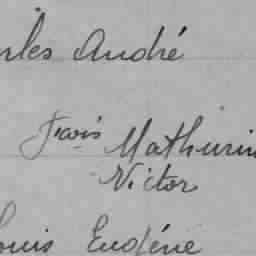 rles André
Mathurin
Victor
Louis Eugène